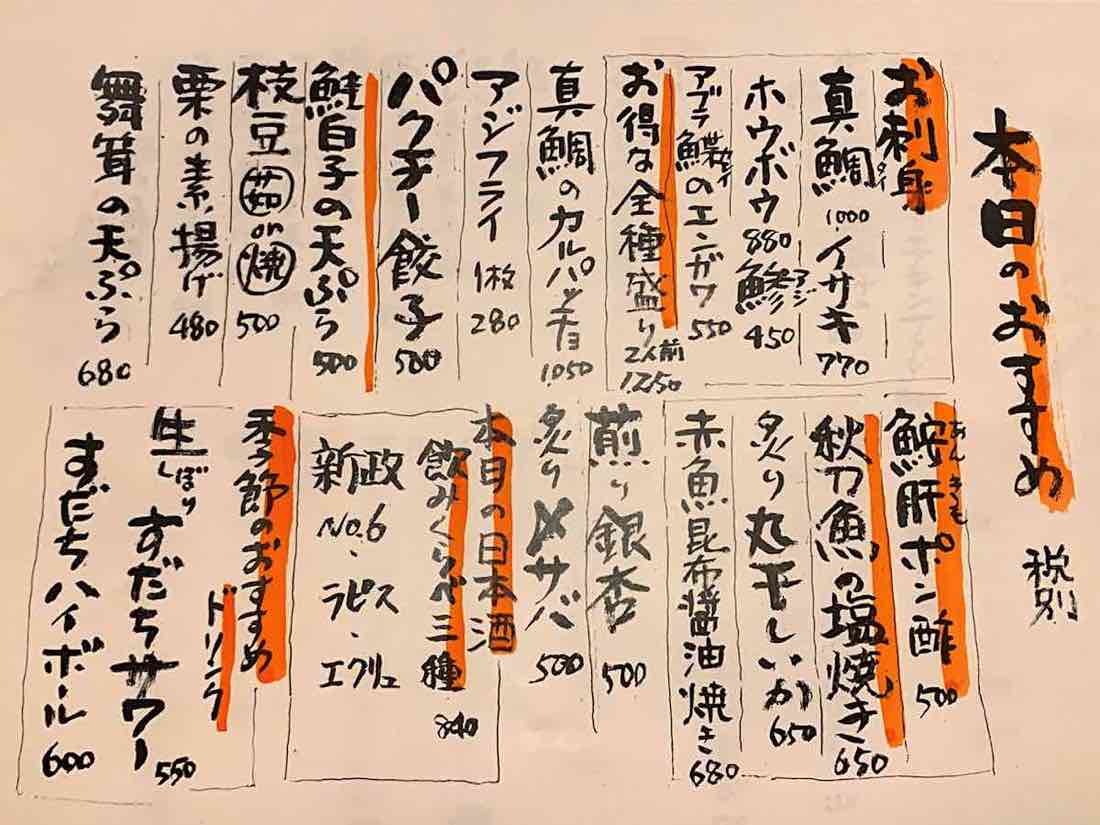 本日のおすすめ
税別
お刺身
真鯛 タイ 1000 イサキ 770
ホウボウ 880 鯵 アジ 450
アブラ鰈 カレイ のエンガワ 550
お得な全種盛り 2人前 1250
真鯛のカルパッチョ 1050
アジフライ 1枚 280
パクチー餃子 500
鮭白子の天ぷら 500
枝豆 茹 or 焼 500
栗の素揚げ 480
舞茸の天ぷら 680
鮟肝ポン酢 あんきも 500
秋刀魚の塩焼き 650
炙り丸干しいか 650
赤魚昆布醤油焼き 680
煎り銀杏 500
炙り〆サバ 500
本日の日本酒
飲みくらべ三種 840
新政
No.6・
ラピス・
エクリュ
季節のおすすめ
ドリンク
生しぼり すだちサワー 550
すだちハイボール 600